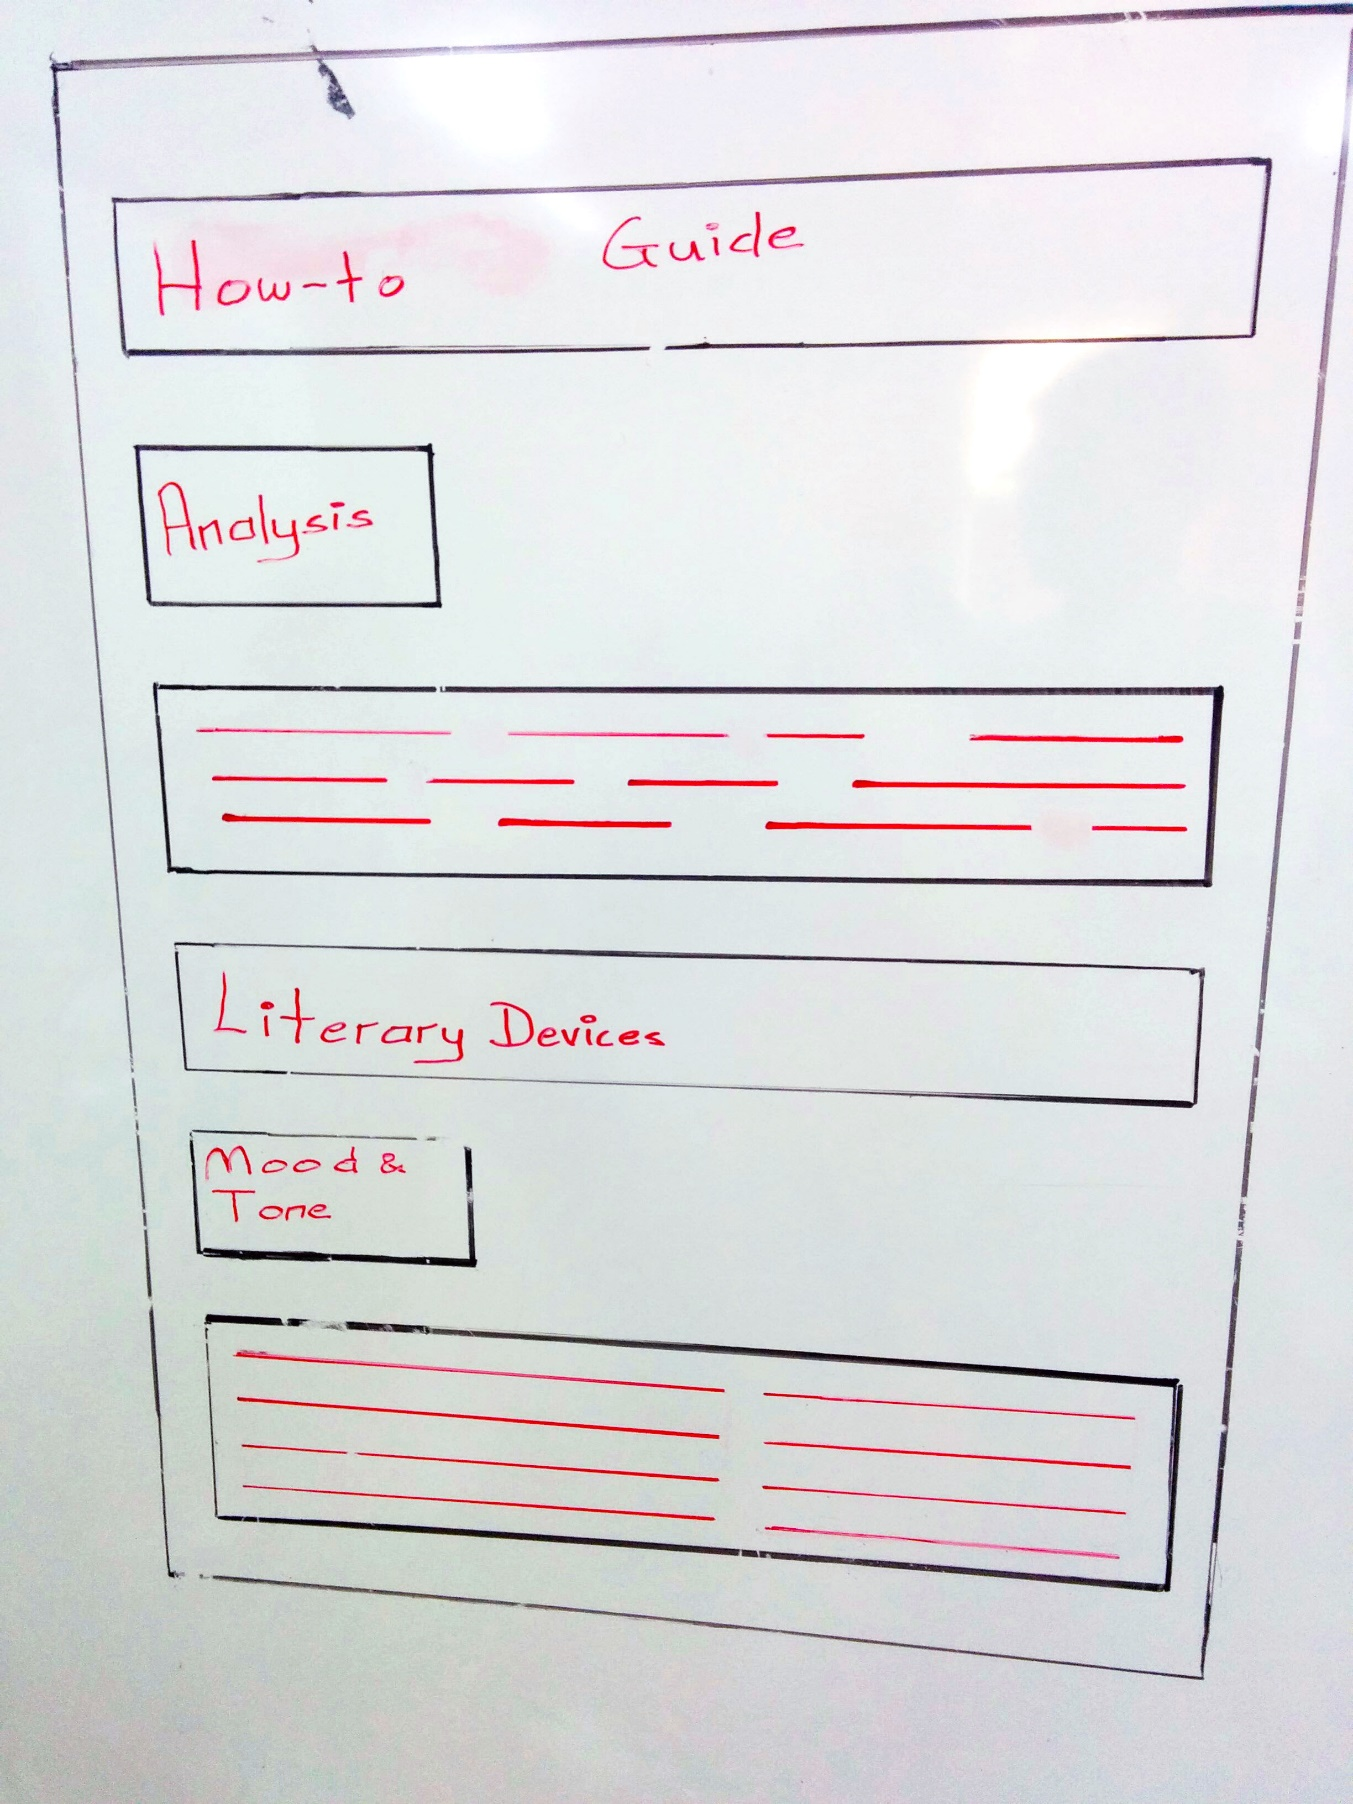 How-to Guide
Analysis
Literary Devices
Mood &
Tone